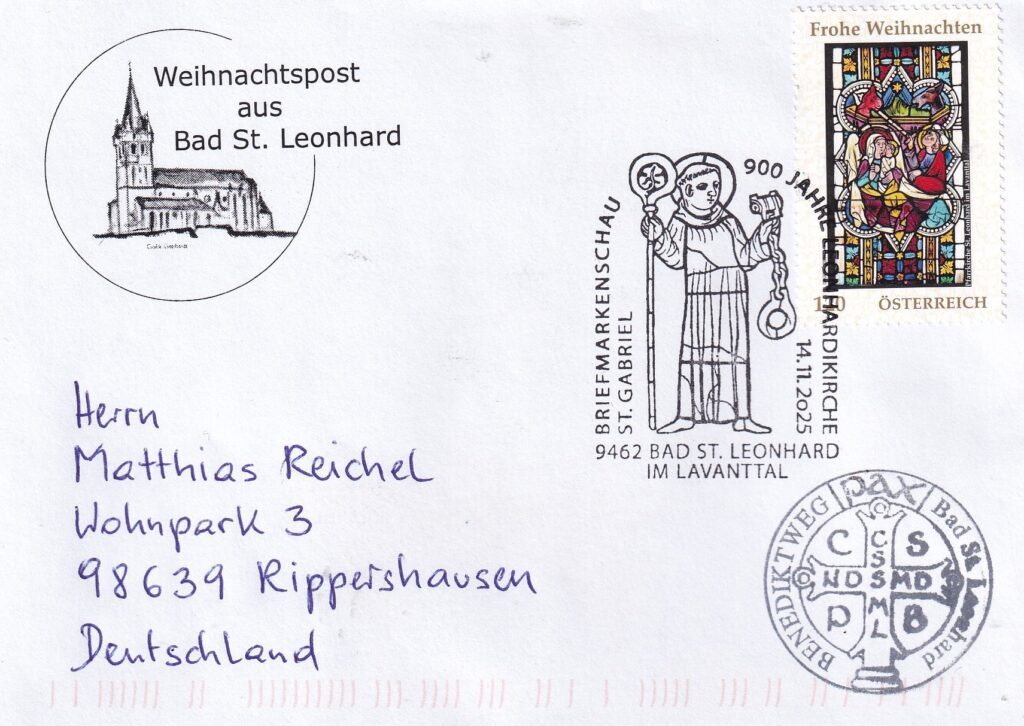 Weihnachtspost
aus
Bad St. Leonhard
Frohe Weihnachten
Pfarrkirche St. Leonhard im Lavanttal
ÖSTERREICH
BRIEFMARKENSCHAU
ST. GABRIEL
900 JAHRE LEONHARDIKIRCHE
14.11.2025
9462 BAD ST. LEONHARD
IM LAVANTTAL
Herrn
Matthias Reichel
Wohnpark 3
98639 Rippershausen
Deutschland
BENEDIKTWEG pax Bad St. Leonhard
C S
C
S
NDSMD
M
L
P B